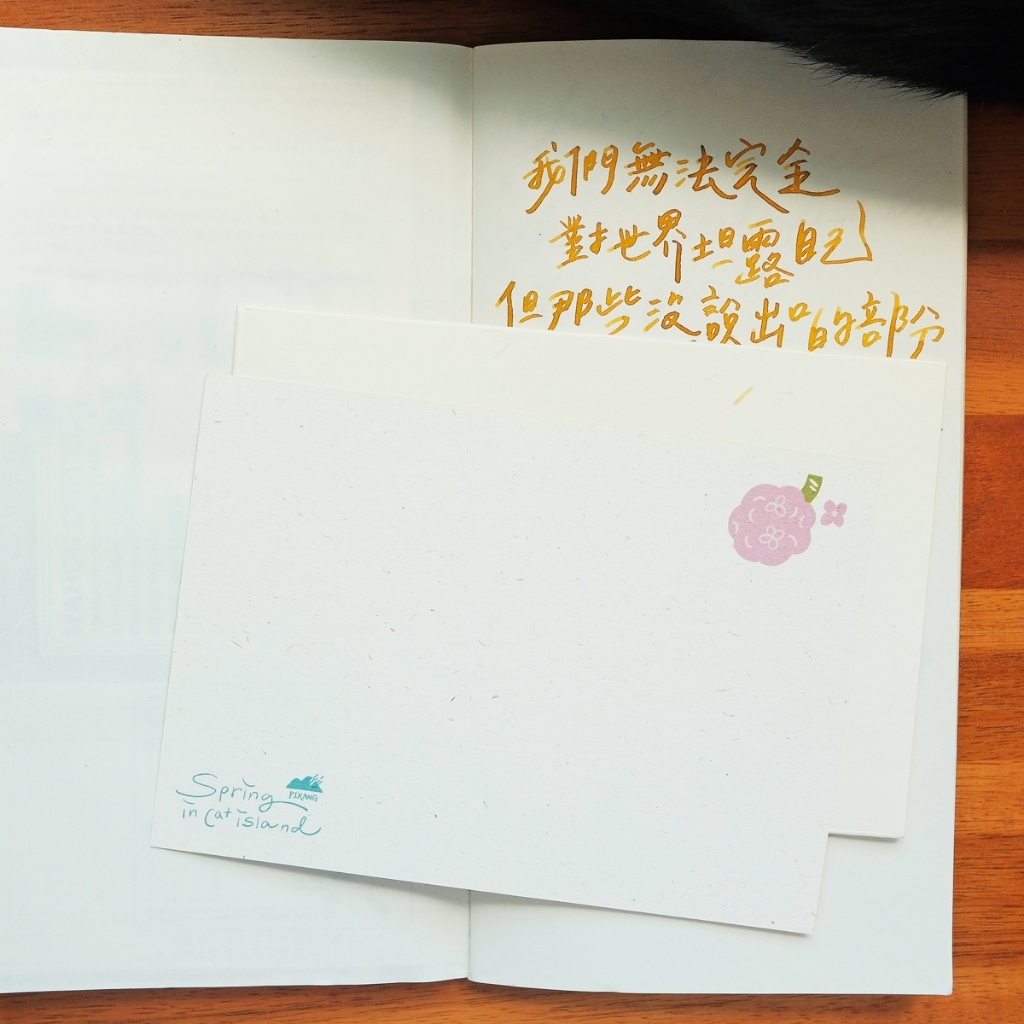 我們無法完全
對世界坦露自己
但那些沒說出口的部份
Spring
PIKANG
in Cat island